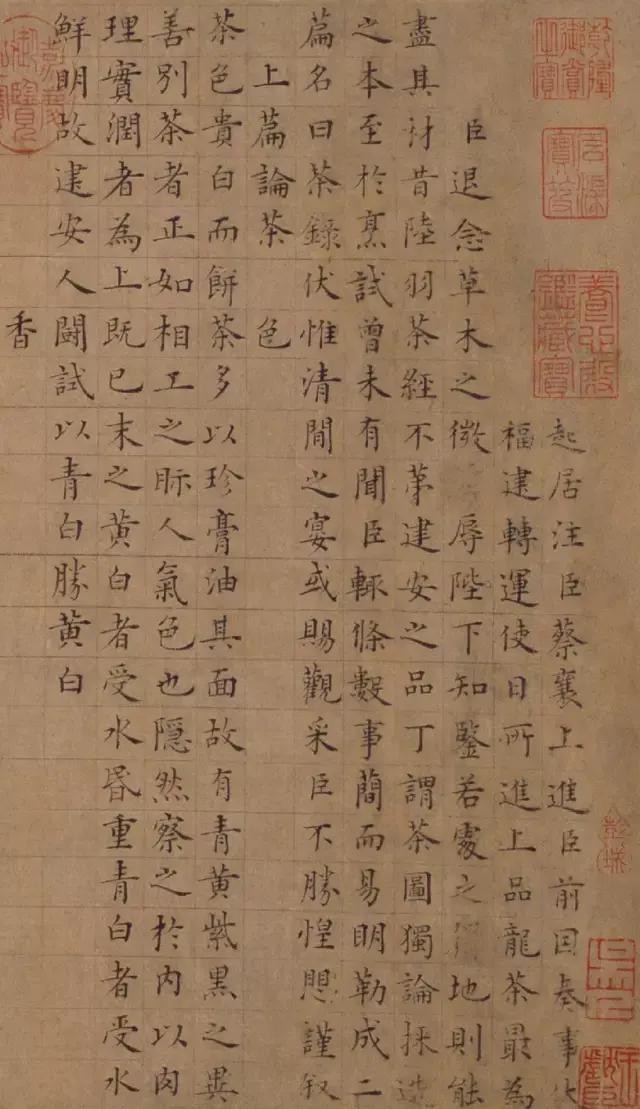 乾隆御賞之寶
石渠寶笈
養心殿鑑藏寶
起居注臣蔡襄上進臣前因奏事伏
福建轉運使日所進上品龍茶最為
臣退念草木之微辱陛下知鑒若處之得地則能
盡其材昔陸羽茶經不第建安之品丁謂茶圖獨論採造
之本至於烹試曾未有聞臣輒條數事簡而易明勒成二
篇名曰茶錄伏惟清閒之宴或賜觀采臣不勝惶懼謹叙
上篇論茶 色
茶色貴白而餅茶多以珍膏油其面故有青黃紫黑之異
善別茶者正如相工之眎人氣色也隱然察之於內以肉
理實潤者為上既已末之黃白者受水昏重青白者受水
鮮明故建安人鬪試以青白勝黃白
香
嘉慶御覽之寶